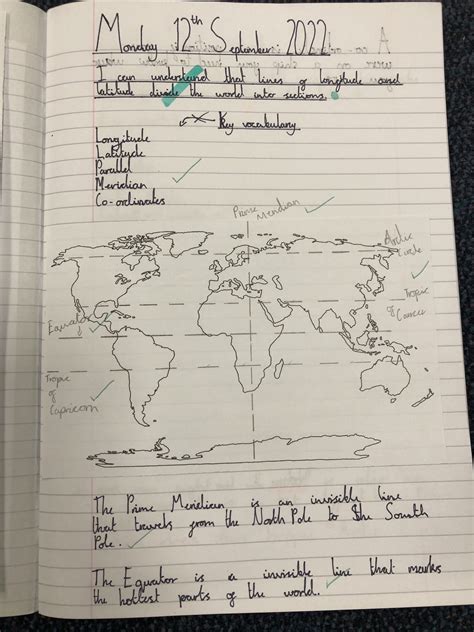 Monday 12th September 2022
I can understand that lines of longitude and
latitude divide the world into sections.
Key vocabulary
Longitude
Latitude
Parallel
Meridian
Co-ordinates
Prime
Meridian
Arctic
Circle
Tropic
of
Cancer
Equator
Tropic
of
Capricorn
The Prime Meridian is an invisible line
that travels from the North Pole to the South
Pole.
The Equator is a invisible line that marks
the hottest parts of the world.